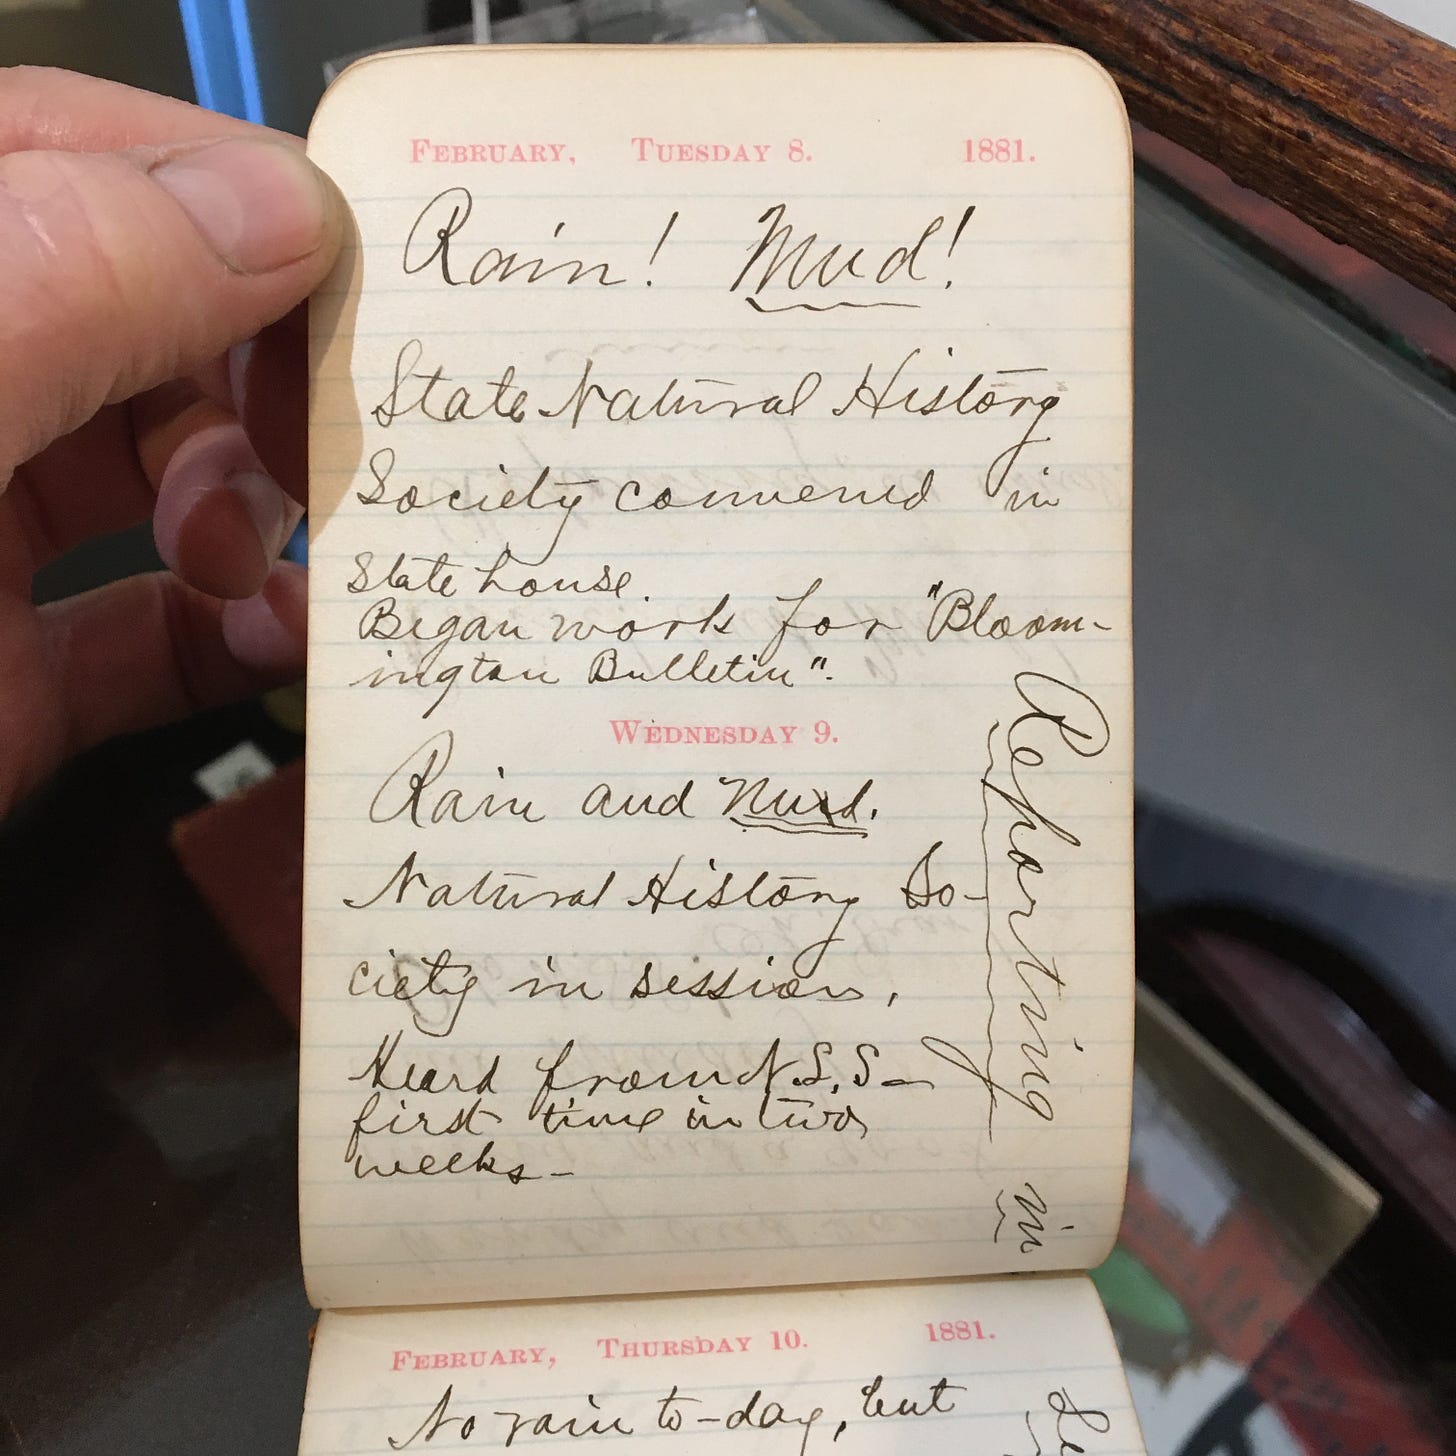 FEBRUARY, TUESDAY 8. 1881.
Rain! Mud!
State Natural History
Society convened in
State house.
Began work for "Bloom-
ington Bulletin".
WEDNESDAY 9.
Rain and Mud.
Natural History So-
ciety in session.
Heard from N.S.S—
first time in two
weeks—
Reporting in
FEBRUARY, THURSDAY 10. 1881.
No rain to-day, but